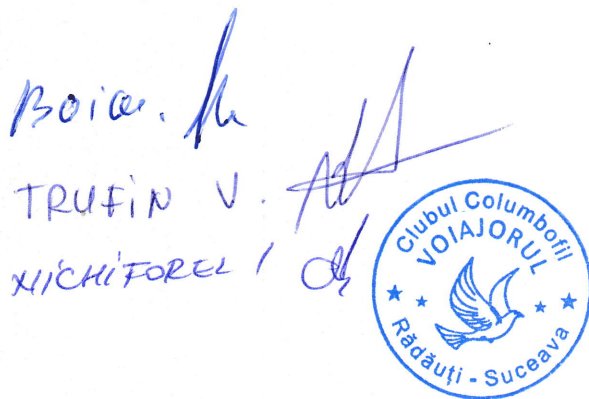 Boicu.
TRUFIN V.
NICHIFOREL I
Clubul Columbofil
VOIAJORUL
Rădăuți - Suceava